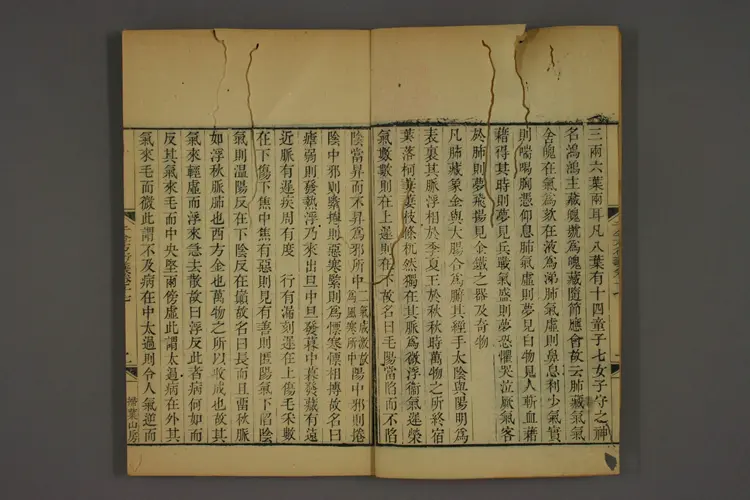 三兩六葉兩耳凡八葉有十四童子七女子守之神
名鴻鴻主藏魄號為魄藏隨節應會故云肺藏氣氣
舍魄在氣為欬在液為涕肺氣虛則鼻息利少氣實
則喘喝胸憑仰息肺氣虛則夢見白物見人斬血藉
藉得其時則夢見兵戰氣盛則夢恐懼哭泣厥氣客
於肺則夢飛揚見金鐵之器及奇物
凡肺藏象金與大腸合為腑其經手太陰與陽明為
表裏其脈浮相於季夏王於秋秋時萬物之所終宿
葉落柯萋萋枝條杌然獨在其脈為微浮衞氣遲榮
氣數數則在上遲則在下故名曰毛陽當陷而不陷
陰當昇而不昇為邪所中為風寒所中陽中邪則捲
陰中邪則緊捲則惡寒緊則為慄寒慄相搏故名曰
瘧弱則發熱浮乃來出旦中旦發暮中暮發藏有遠
近脈有遲疾周有度 行有漏刻遲在上傷毛采數
在下傷下焦中焦有惡則見有善則匿陽氣下陷陰
氣則溫陽反在下陰反在巔故名曰長而且留秋脈
如浮秋脈肺也西方金也萬物之所以收成也故其
氣來輕虛而浮來急去散故曰浮反此者病何如而
反其氣來毛而中央堅兩傍虛此謂太過病在外其
氣來毛而微此謂不及病在中太過則令人氣逆而
掃葉山房